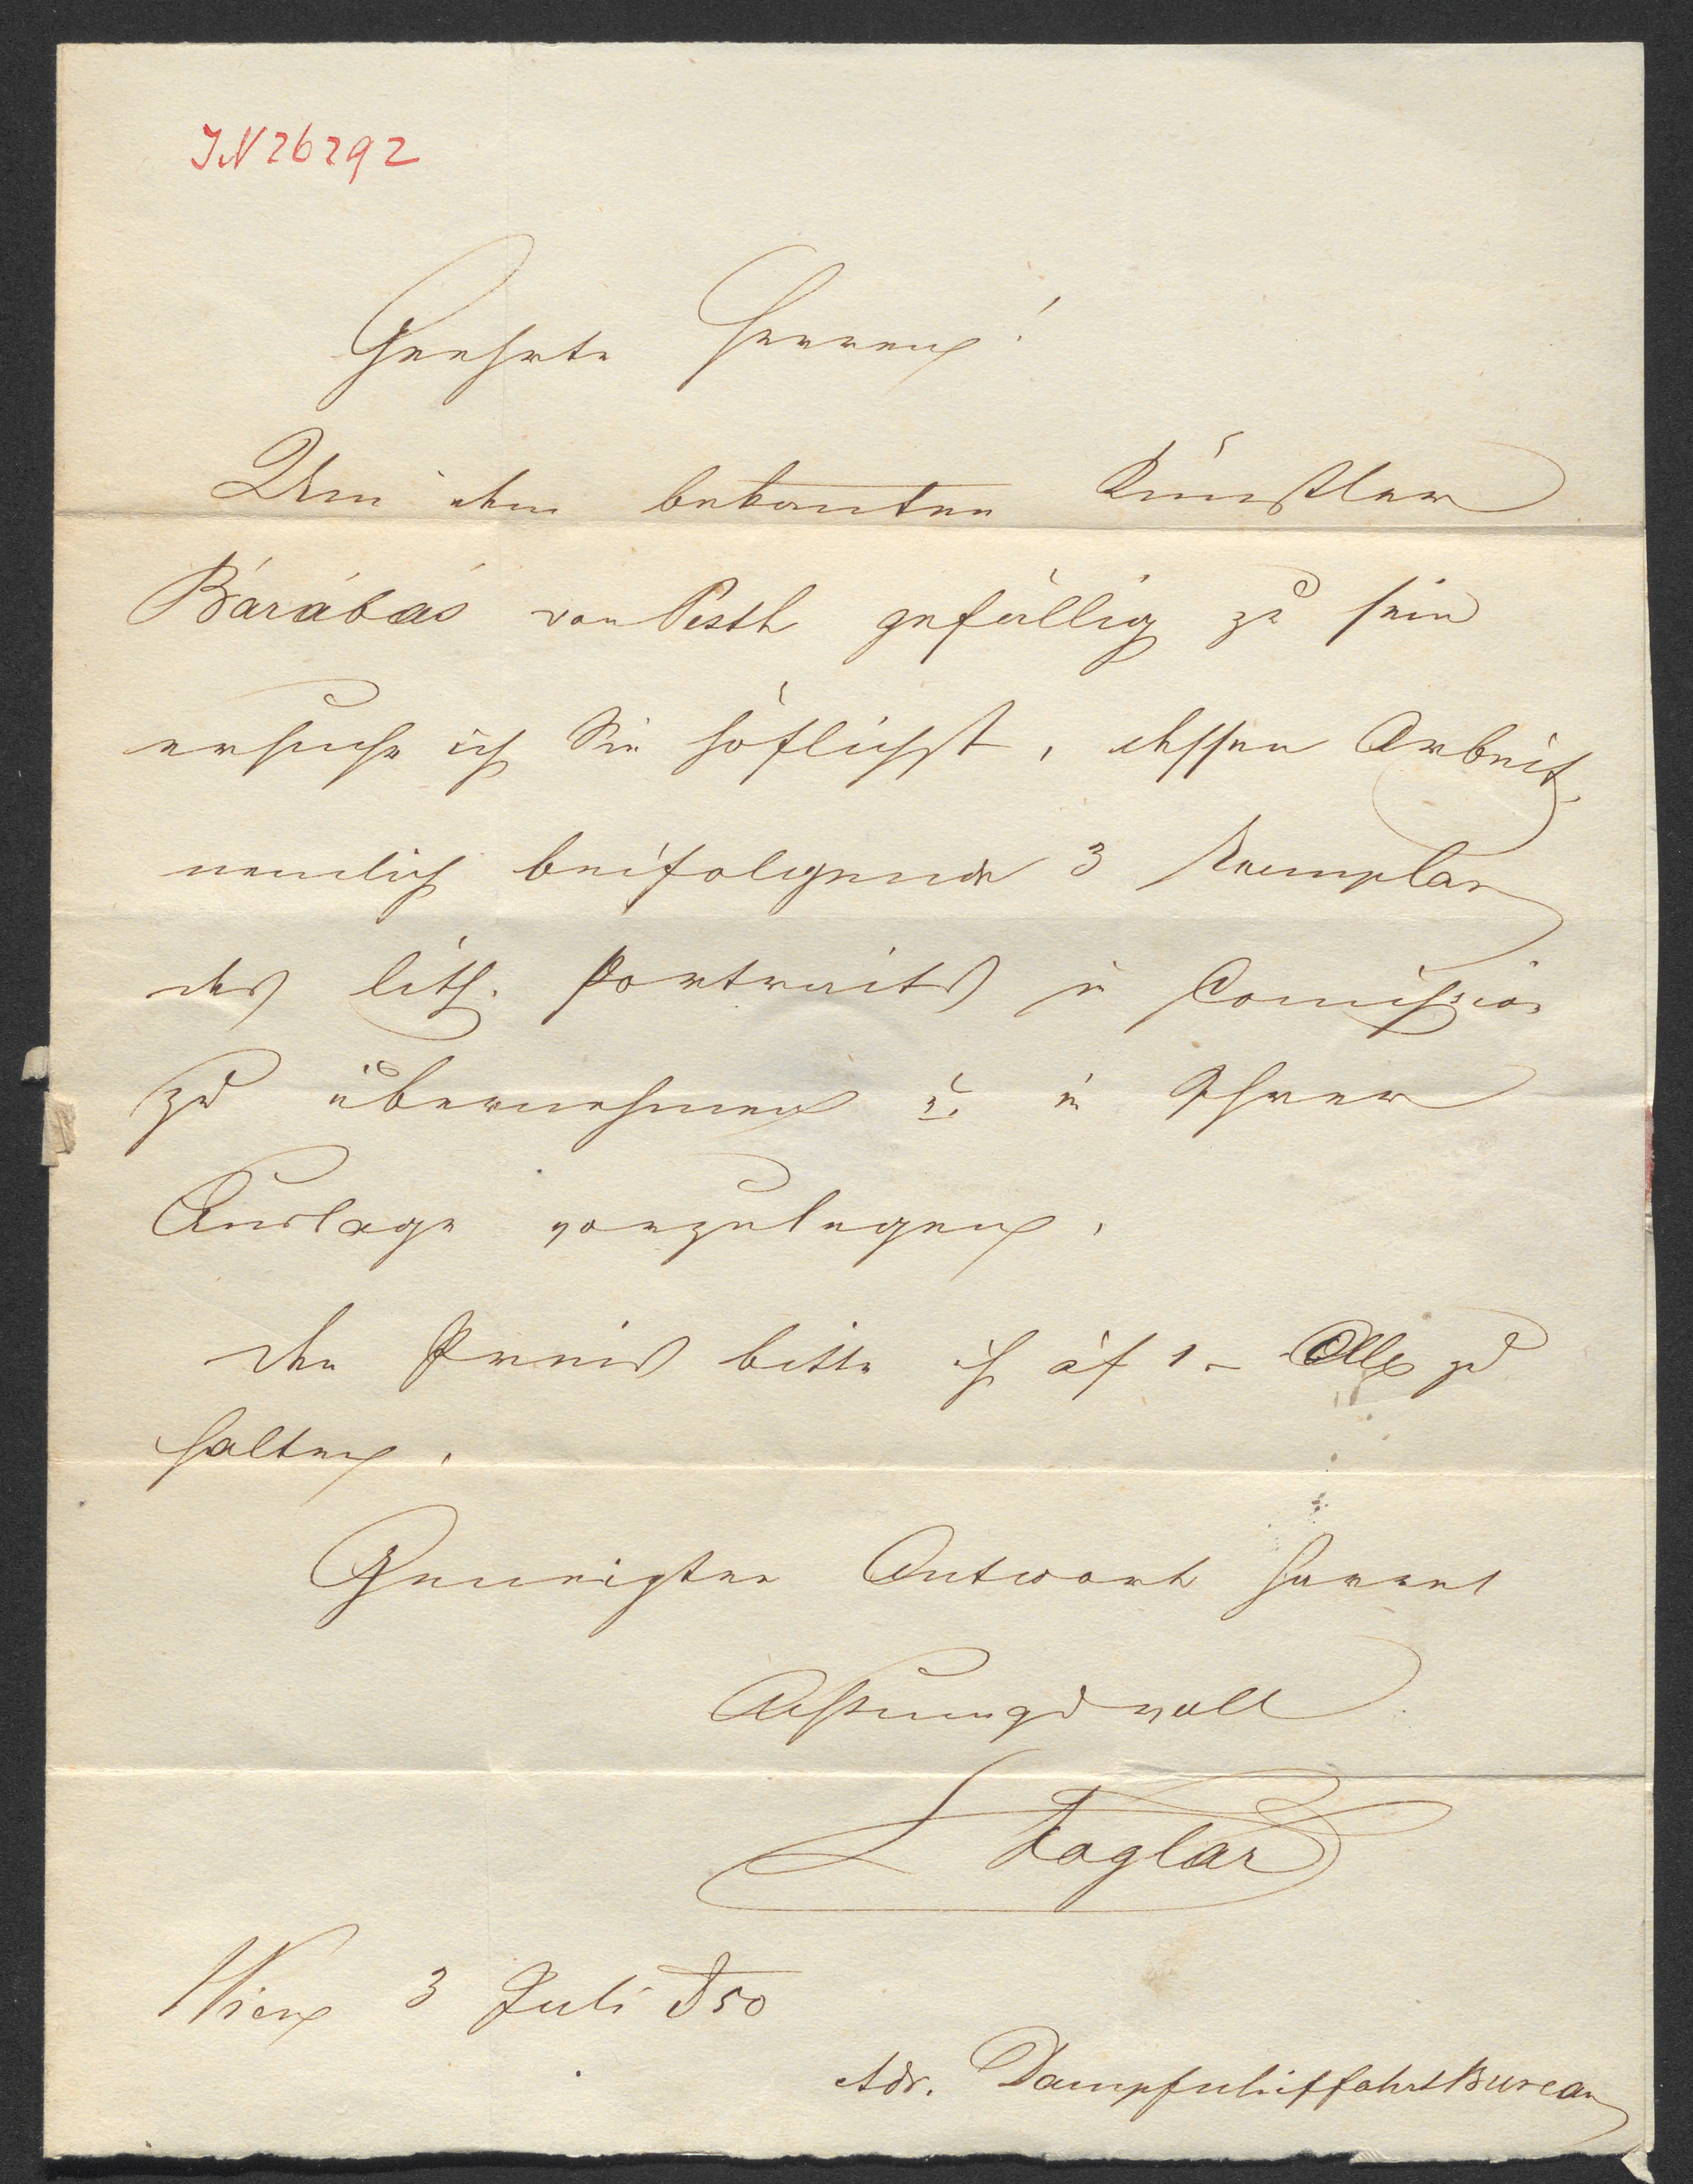 IN 26292
Geehrte Herren!
Um dem bekannten Künstler
Bárábás von Pesth gefällig zu sein
ersuche ich Sie höflichst, dessen Arbeit,
nemlich beifolgende 3 Exemplar
des lith. Portraits in Comission
zu übernehmen u. in Ihrer
Auslage vorzulegen.
Den Preis bitte ich auf 1 – zu
halten.
Geneigter Antwort harret
Achtungsvoll
L Koglar
Wien 3 Juli 850
Adr. Dampfschiffahrt Bureau